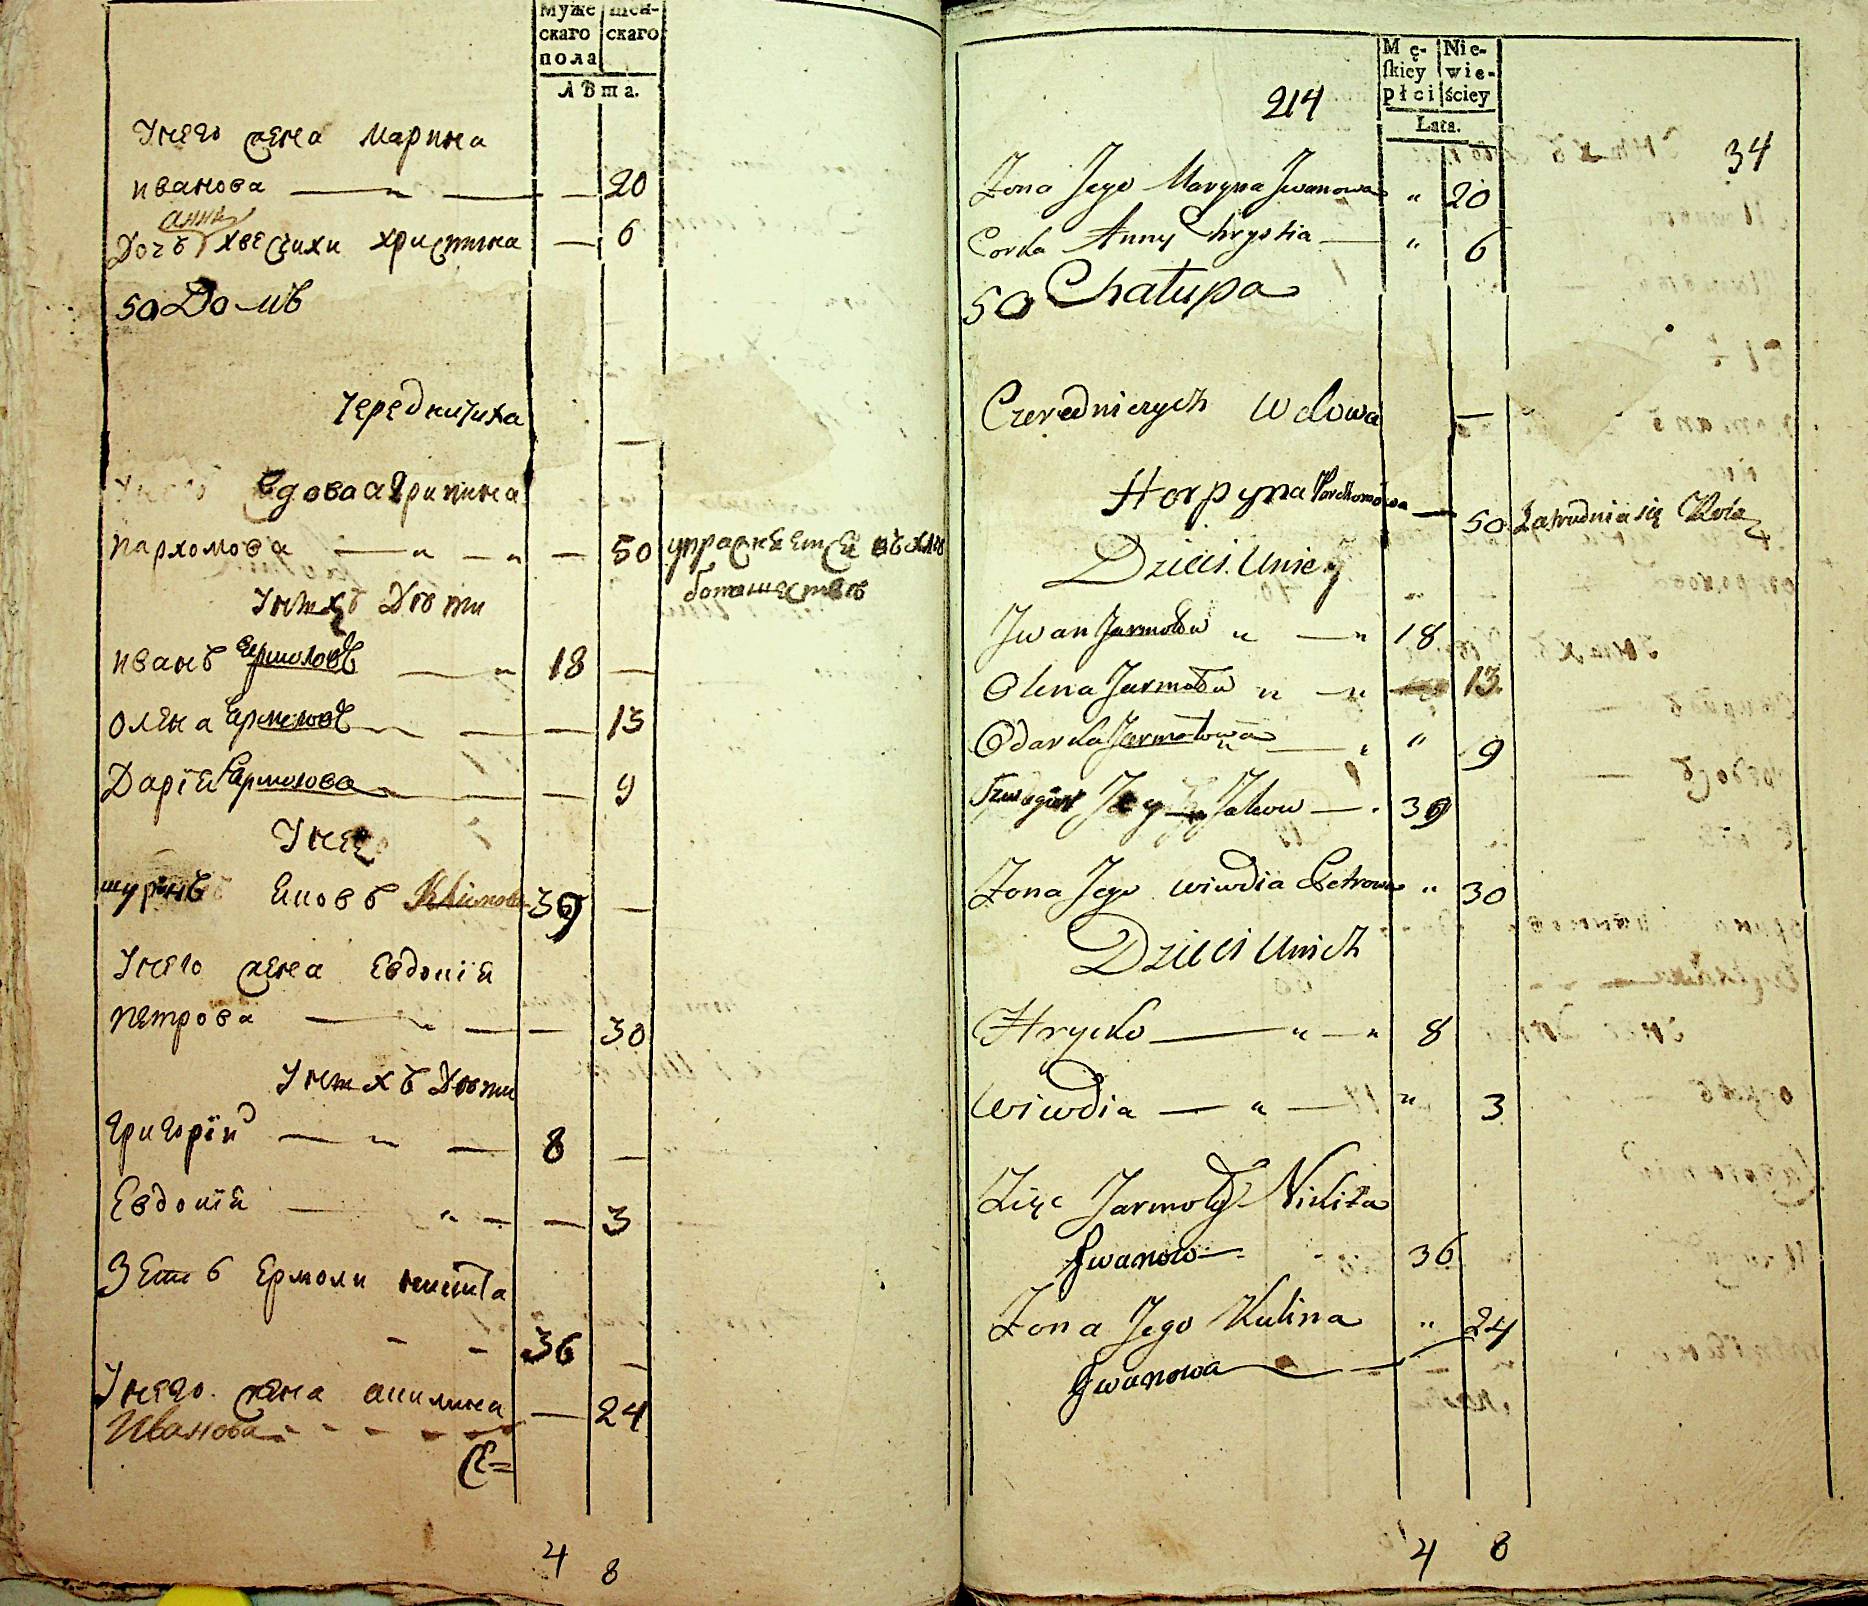 Муже
скаго
пола
жен-
скаго
Лѣта.
У него жена Марина
иванова 20
анны
Дочь хвесцихи христина 6
50 Домъ
Чередничиха
вдова агрипина
пархомова 50 упражняется въ хлѣ
бопашествѣ
У нихъ Дѣти
иванъ Ермоловъ 18
олена Ермолов 13
Дарія Ермолова 9
У нея
шуринъ Яковъ Климовъ 39
У него жена Евдокія
петрова 30
У нихъ Дѣти
Григорій 8
Евдокія 3
Зять Ермоли никита
36
У него жена акилина 24
Иванова
Се=
4 8
Mę-
skiey
płci
Nie-
wie-
ściey
Lata.
214
34
Zona Jego Maryna Jwanowa " 20
Corka Anny Chrystia " 6
50 Chałupa
Czeredniczych wdowa
Horpyna Parchomowa 50 Zatrudnia się Rolą
Dzieci Uniey
Jwan Jarmołow 18
Olena Jarmołow 13
Odarka Jarmołowa " 9
Szwagier Jey Jakow 39
Zona Jego wiwdia Petrowa " 30
Dzieci Unich
Hrycko 8
wiwdia " 3
Zięc Jarmoły Nikita
Jwanow 36
Zona Jego Kulina " 24
Jwanowa
4 8